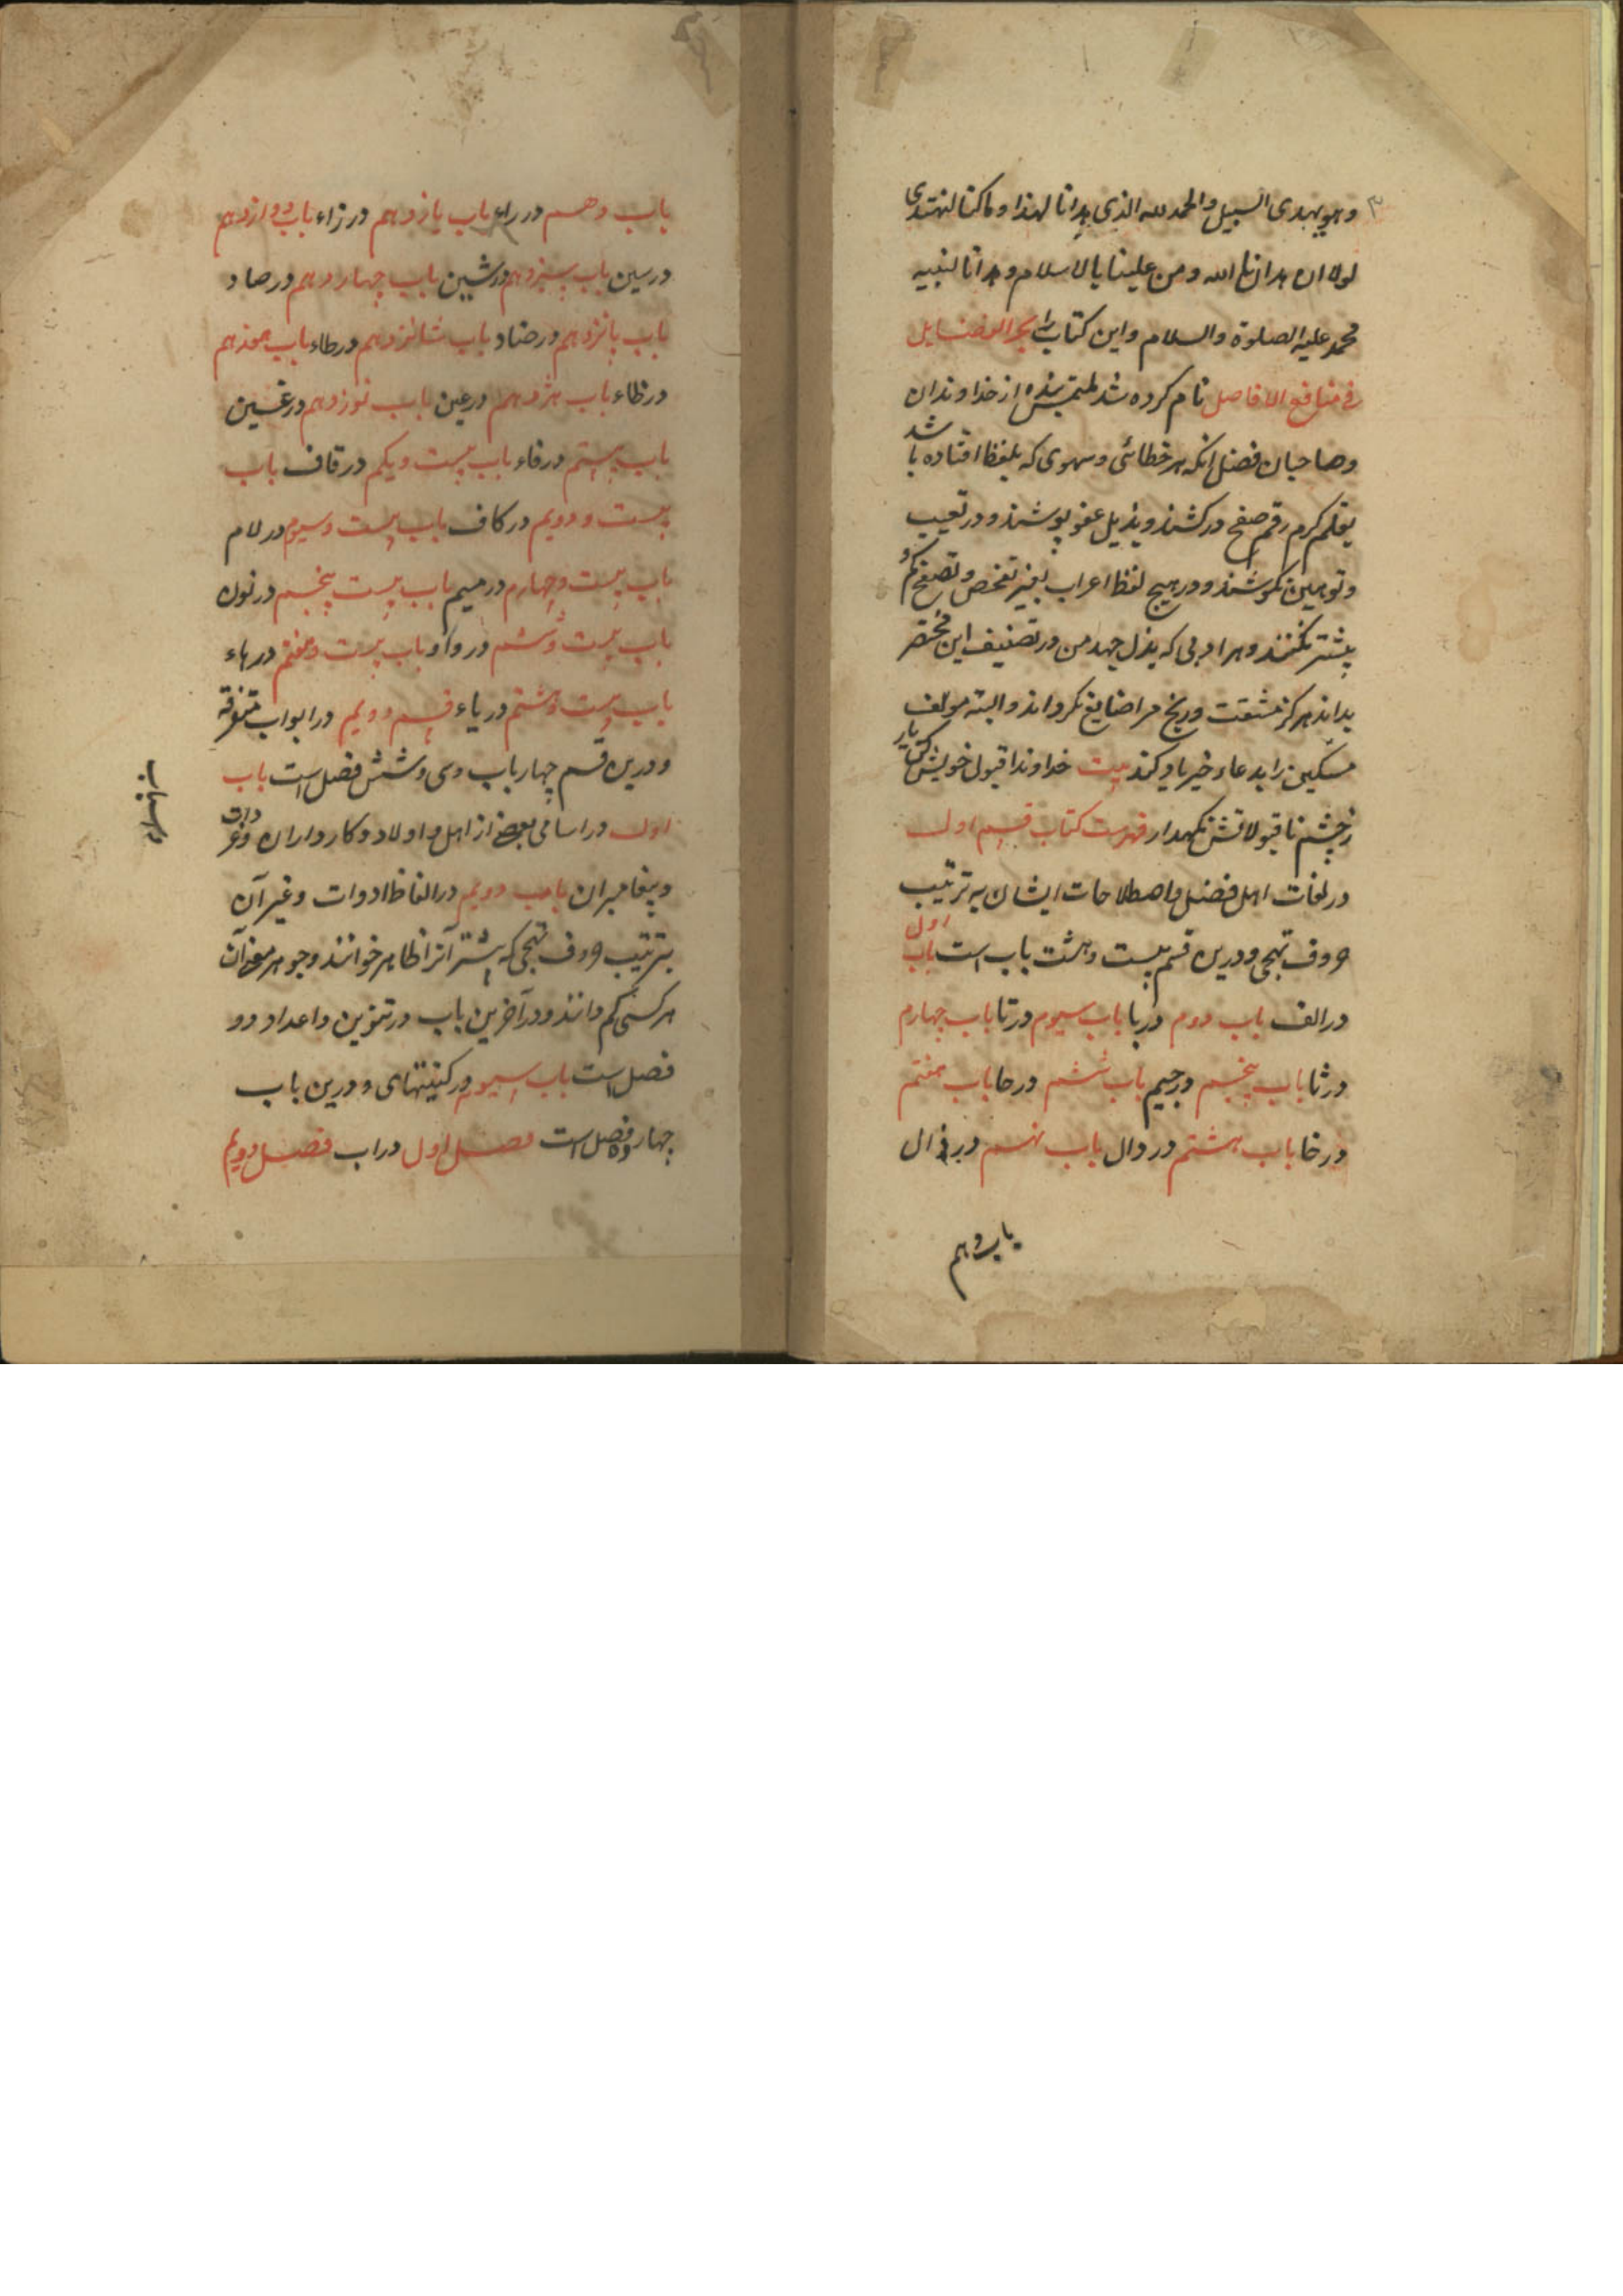 ۳
وهو یهدی السبیل والحمد لله الذی هدانا لهذا وماکنا لنهتدی
لولا ان هدانا الله ومن علینا بالاسلام وهدانا لنبیه
محمد علیه الصلوة والسلام واین کتاب را بحر الفضایل
فی منافع الافاضل نام کرده شد ملتمس بنده از خداوندان
وصاحبان فضل آنکه هر خطائی وسهوی که بلفظ افتاده باشد
بقلم کرم رقم صفح درکشند وبذیل عفو بپوشند ودر تعییب
وتوهین نکوشند ودر هیچ لفظ اعراب بغیر تفحص وتصفح کم و
بیشتر نکنند وهر ادبی که بذل جهد من در تصنیف این مختصر
بداند هرگز مشقت ورنج مرا ضایع نگرداند والبته مولف
مسکین را بدعاء خیر یاد کند بیت خداوندا قبول خویش کن یار
زچشم ناقبولانش نگهدار فهرست کتاب قسم اول
در لغات اهل فضل واصطلاحات ایشان به ترتیب
حروف تهجی ودرین قسم بیست وهشت باب است باب اول
در الف باب دوم در با باب سیوم در تا باب چهارم
در ثا باب پنجم در جیم باب ششم در حا باب هفتم
در خا باب هشتم در دال باب نهم در ذال
باب دهم
باب دهم در راء باب یازدهم در زاء باب دوازدهم
در سین باب سیزدهم در شین باب چهاردهم در صاد
باب پانزدهم در ضاد باب شانزدهم در طاء باب هفدهم
در ظاء باب هژدهم در عین باب نوزدهم در غین
باب بیستم در فاء باب بیست ویکم در قاف باب
بیست ودویم در کاف باب بیست وسیوم در لام
باب بیست وچهارم در میم باب بیست پنجم در نون
باب بیست وششم در واو باب بیست وهفتم در هاء
باب بیست وهشتم در یاء قسم دویم در ابواب متفرقة
ودرین قسم چهار باب وسی وشش فصل است باب
اول در اسامی بعضی از اهل واولاد وکارداران
وپیغامبران باب دویم در الفاظ ادوات وغیر آن
بترتیب حروف تهجی که بیشتر آنرا ظاهر خوانند وجوهر معنی آن
هرکسی کم دانند ودر آخرین باب در تنوین واعداد دو
فصل است باب سیوم در کنیتهای ودرین باب
چهارده فصل است فصل اول در اب فصل دویم